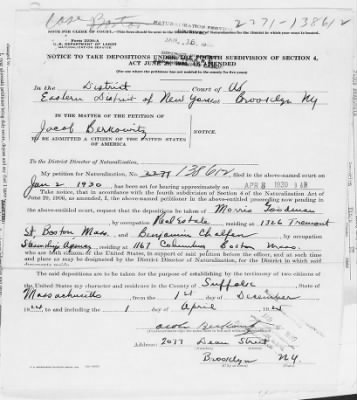 2271-13861 2
NOTE FOR CLERK OF COURT.—
U.S. DEPARTMENT OF LABOR
NATURALIZATION SERVICE
NOTICE TO TAKE DEPOSITIONS UNDER THE FOURTH SUBDIVISION OF SECTION 4,
ACT JUNE 29, 1906, AS AMENDED
In the District Court of US
Eastern District of New York Brooklyn Ny
IN THE MATTER OF THE PETITION OF
Jacob Berkowitz
To BE ADMITTED A CITIZEN OF THE UNITED STATES
OF AMERICA
NOTICE.
To the District Director of Naturalization:
My petition for Naturalization, No. 2271 138612 filed in the above-named court on
Jan 2 1930, has been set for hearing approximately on APR 8 1930 9 AM
Take notice, that in accordance with the fourth subdivision of Section 4 of the Naturalization Act of
June 29, 1906, as amended, I, the above-named petitioner in the aforesaid proceeding now pending in
the above-entitled court, request that the depositions be taken of Morris Goodman
by occupation Real Estate residing at 1326 Tremont
St. Boston Mass. and Benjamin Chalfen, by occupation
Laundry Agency, residing at 1167 Columbus Boston Mass.
who are both citizens of the United States, in support of said petition before the officer, and at such time
and place as may be designated by the District Director of Naturalization, for the District in which said
The said depositions are to be taken for the purpose of establishing by the testimony of two citizens of
the United States my character and residence in the County of Suffolk, State of
Massachusetts, from the 1st day of December
to and including the 1 day of April
Jacob Berkowitz
Address: 2077 Dean Street
Brooklyn NY.